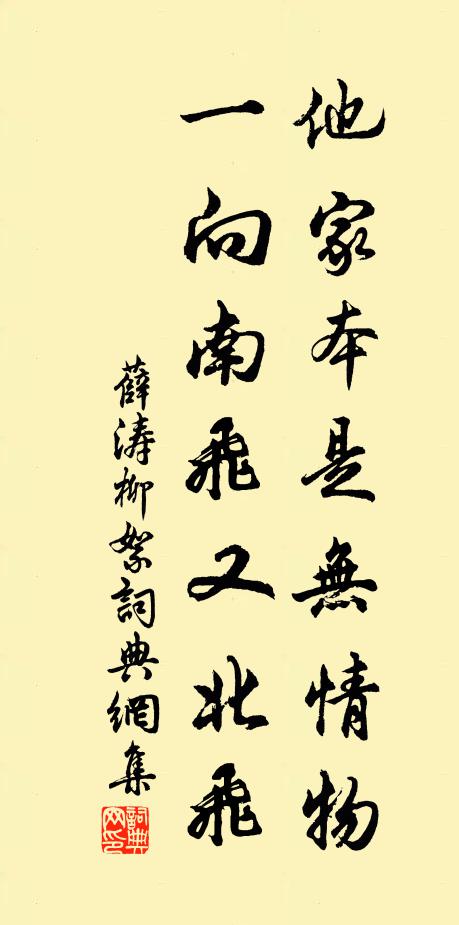 他家本是無情物
一向南飛又北飛
薛濤柳絮詞典網集
詞典網印